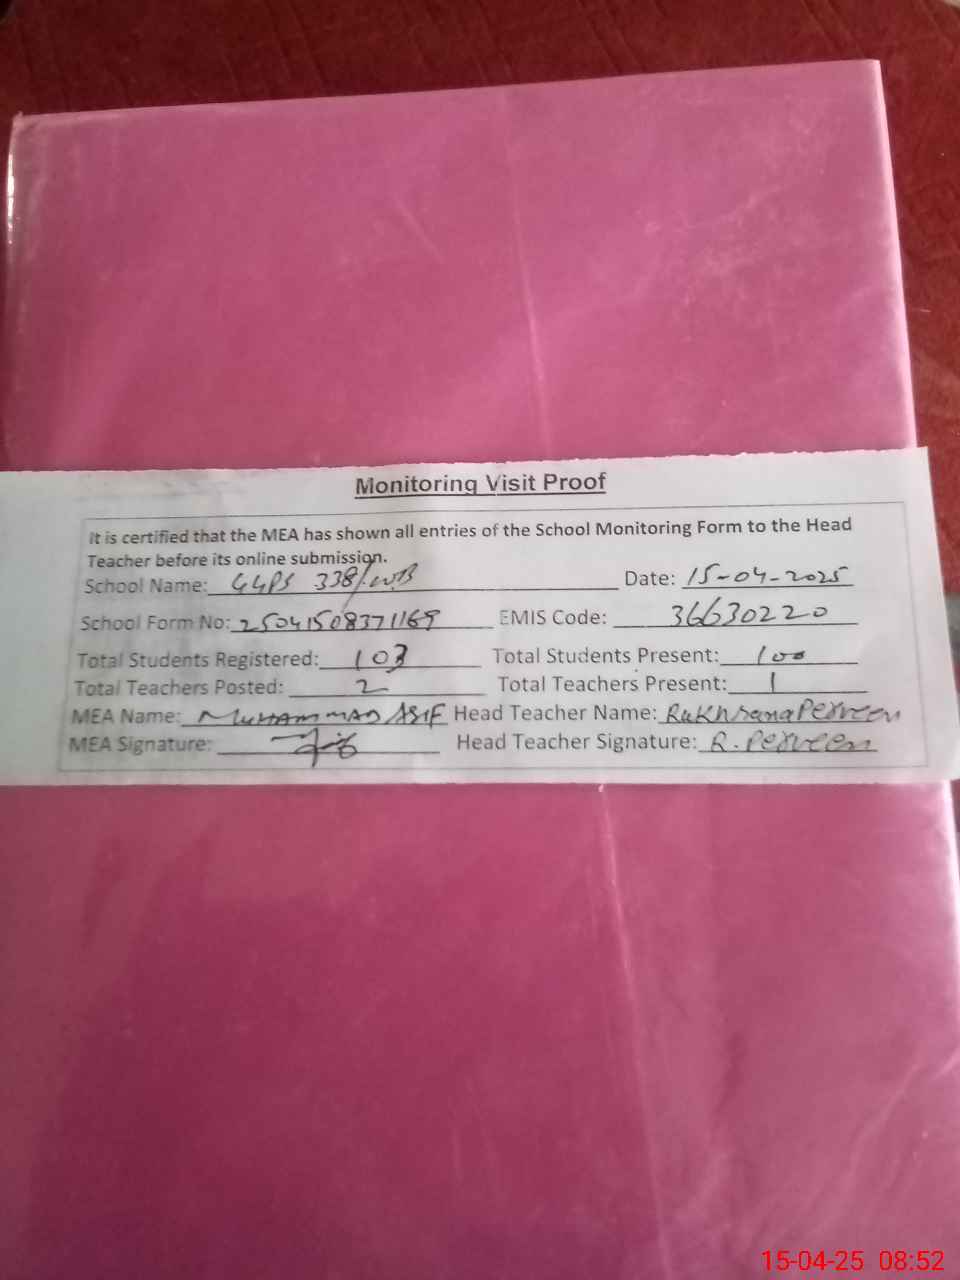 Monitoring Visit Proof
It is certified that the MEA has shown all entries of the School Monitoring Form to the Head
Teacher before its online submission.
School Name: GGPS 338/WB Date: 15-04-2025
School Form No: 25041508371169 EMIS Code: 36630220
Total Students Registered: 103 Total Students Present: 100
Total Teachers Posted: 2 Total Teachers Present: 1
MEA Name: MUHAMMAD ASIF Head Teacher Name: Rukhsana Perveen
MEA Signature: Head Teacher Signature: R. Perveen
15-04-25 08:52